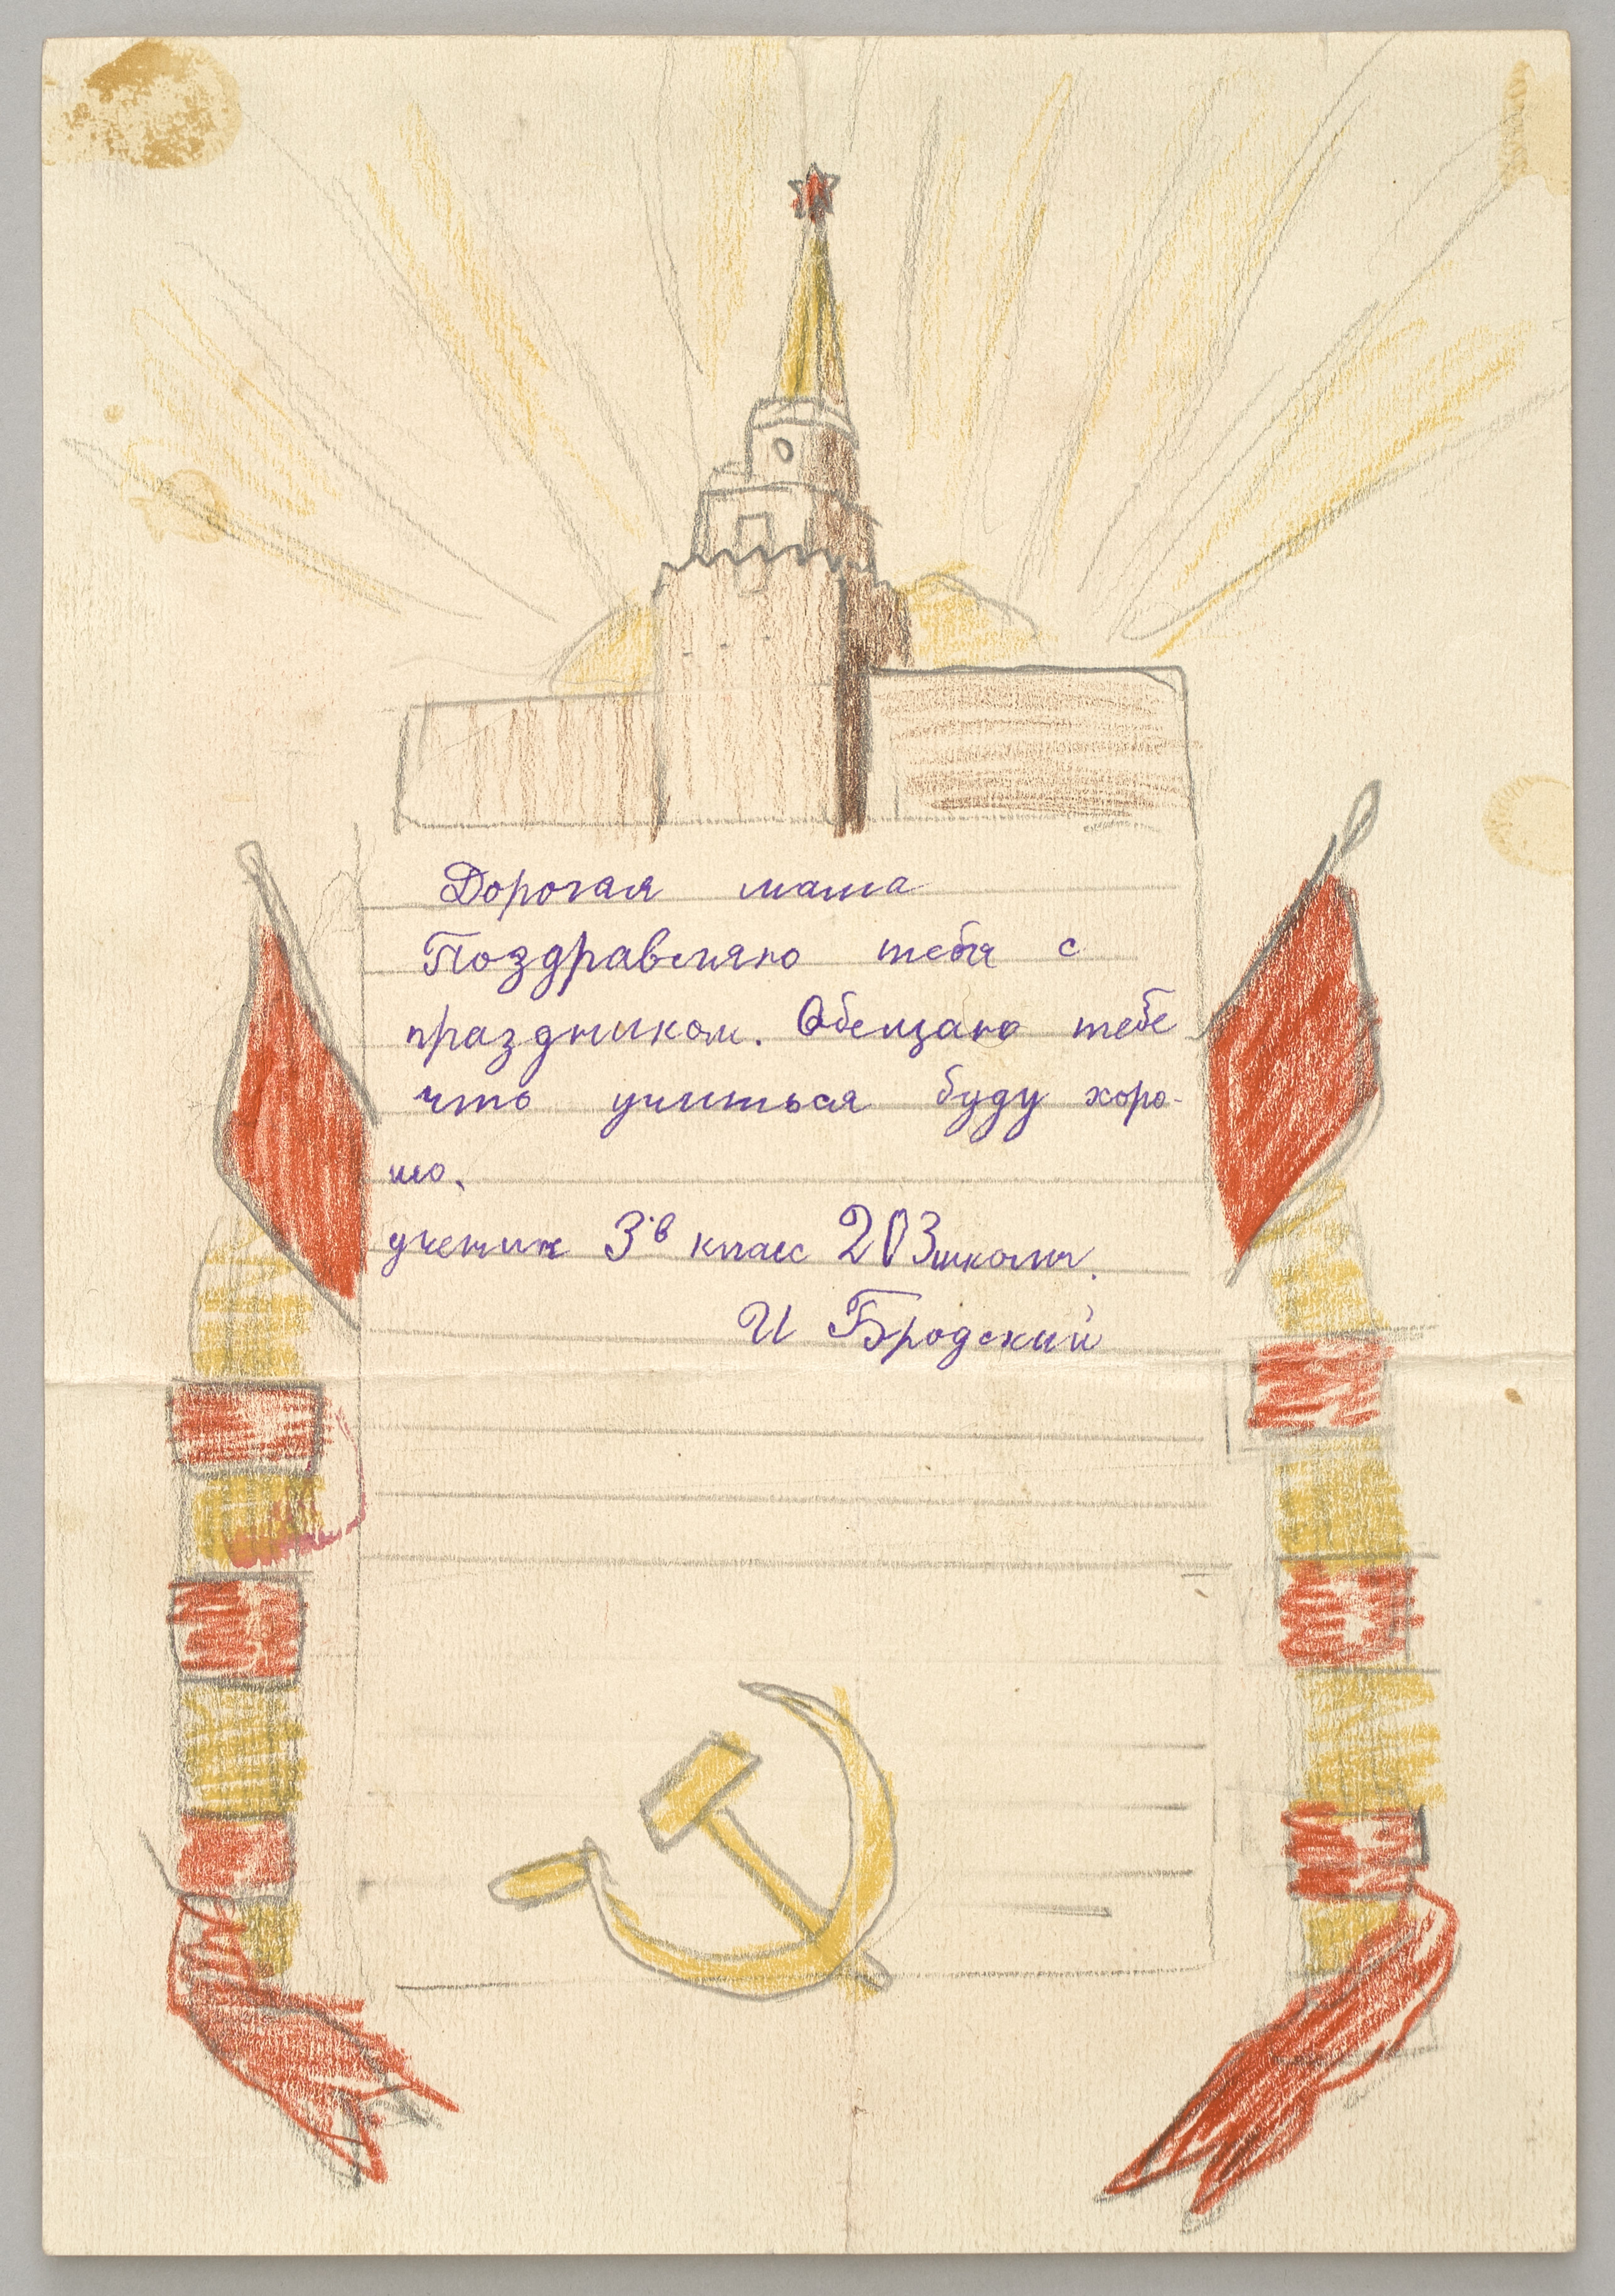 Дорогая мама
Поздравляю тебя с
праздником. Обещаю тебе
что учиться буду хоро-
шо.
ученик 3·в класс 203 школы.
И Бродский